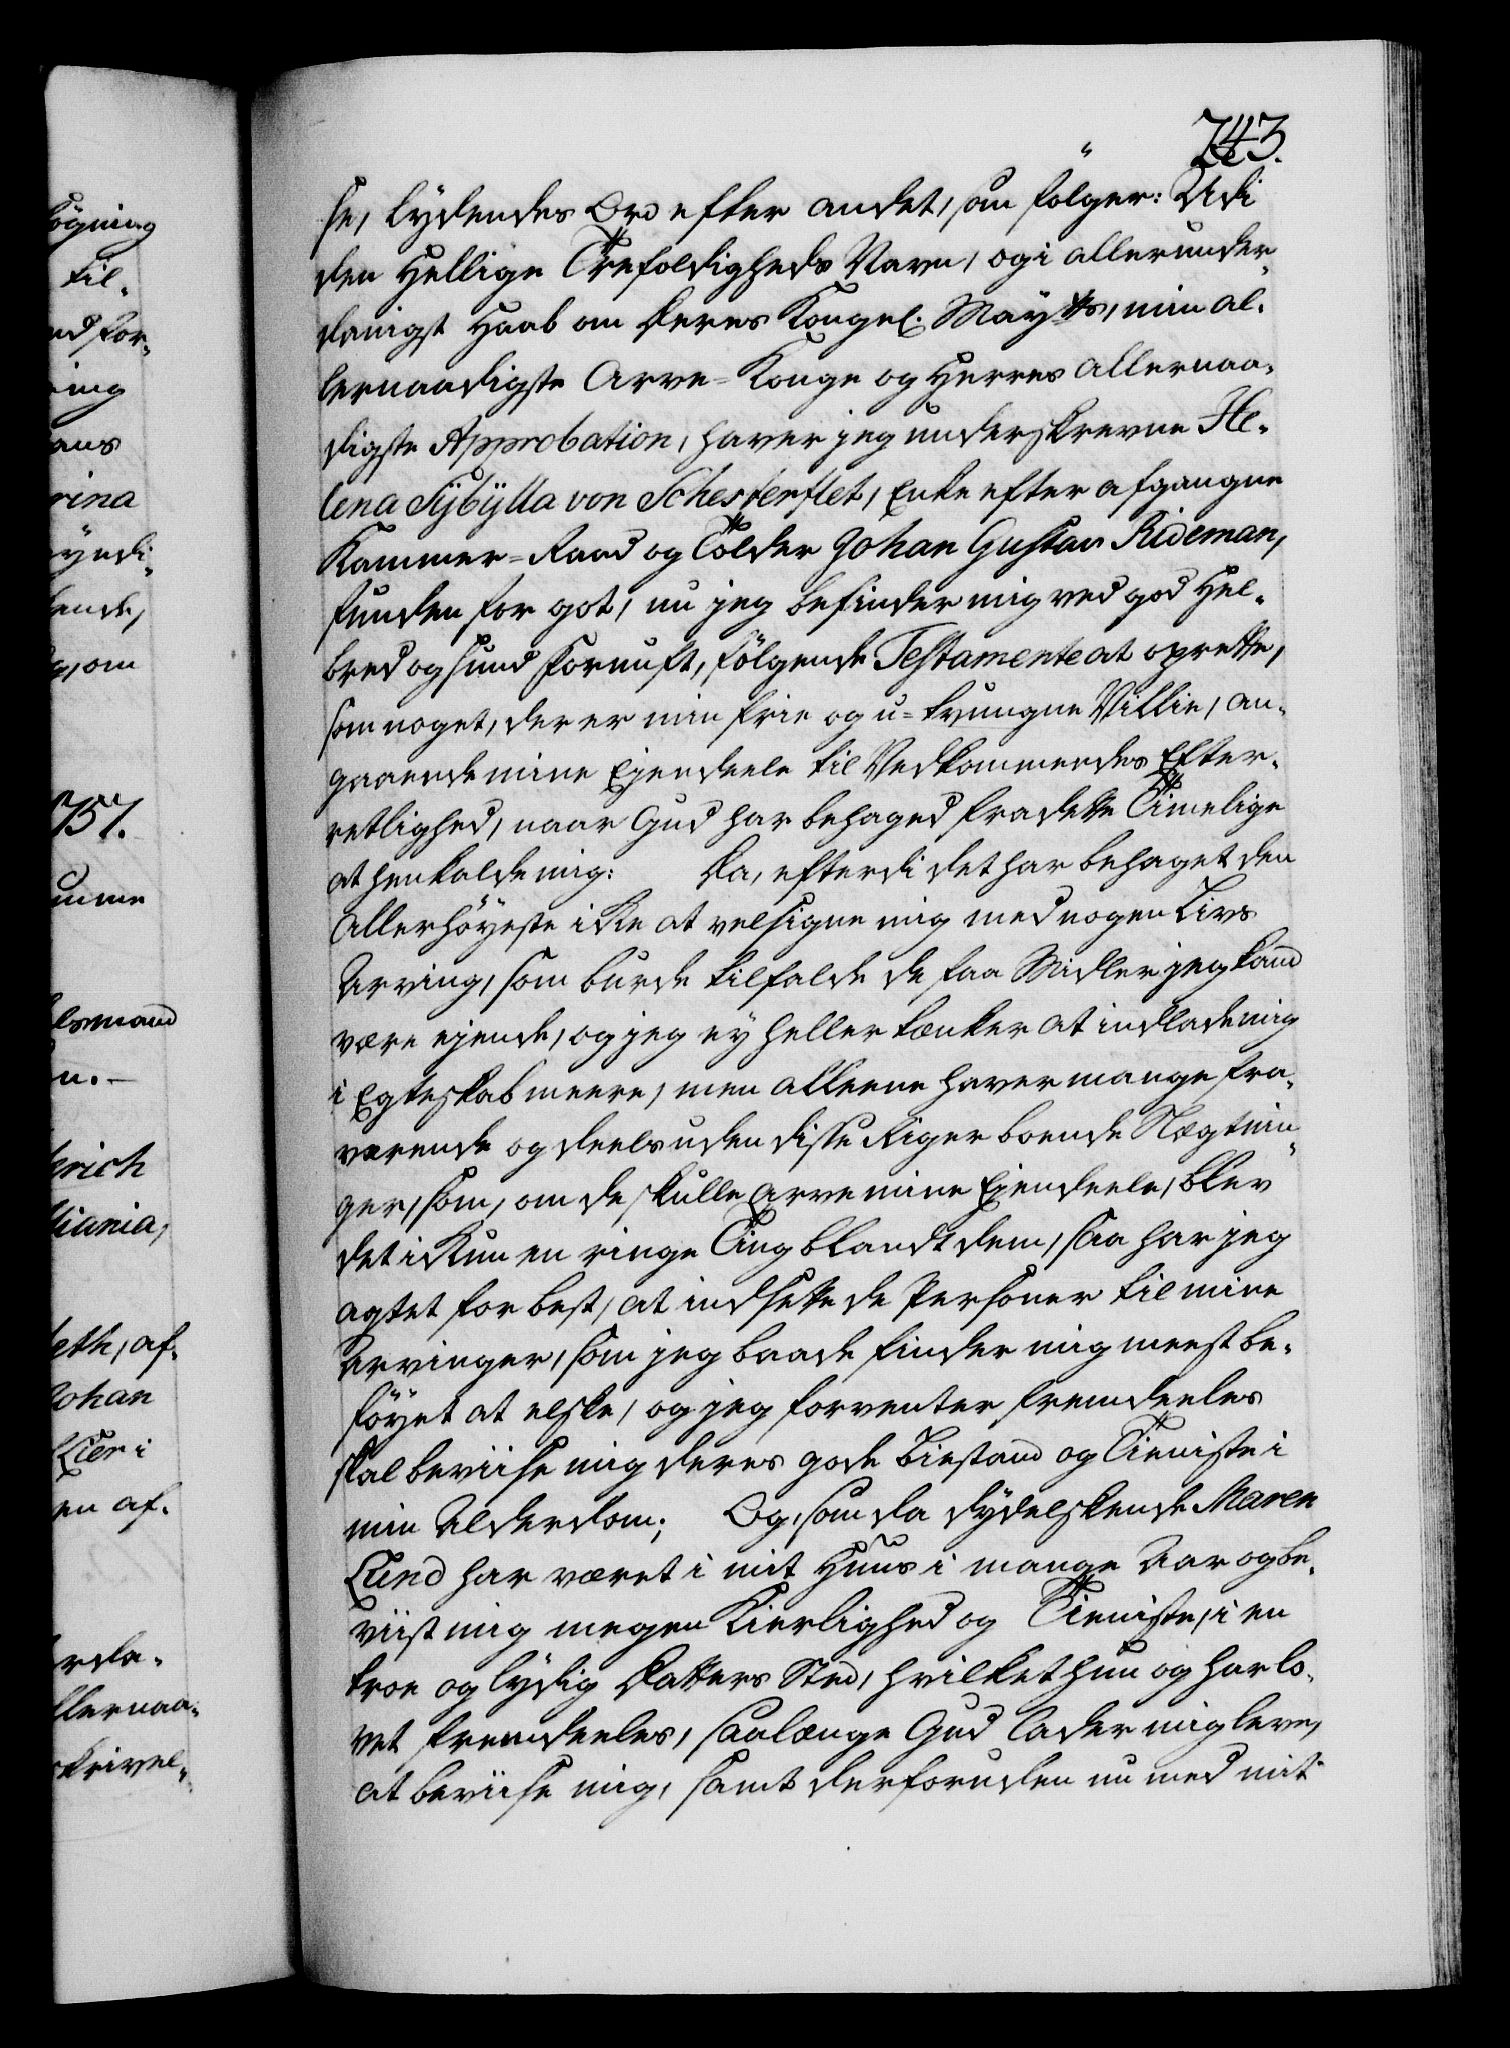 743.
se, lydendes Ord efter andet, som følger: Udi
den Hellige Trefoldigheds Navn, og i allerunder-
danigst Haab om Deres Kongel. Mayts, min al-
lernaadigste Arve-Konge og Herres allernaa-
digste Approbation, haver jeg underskrevne He-
lena Sÿbÿlla von Schesterflet, Enke efter afgangne
Kammer-Raad og Tolder Johan Gustav Rideman,
funden for got, nu jeg befinder mig ved god Hel-
bred og sund Fornuft, følgende Testamente at oprette,
som noget, der er min frie og u-tvungne Villie, an-
gaaende mine Ejendeele til Vedkommendes Efter-
retlighed, naar Gud har behaged fra dette Timelige
at henkalde mig: Da, efterdi det har behaget den
Allerhöyeste ikke at velsigne mig med nogen Livs
Arving, som burde tilfalde de faa Midler jeg kand
være ejende, og jeg ey heller tænker at indlade mig
i Egteskab meere, men alleene haver mange fra-
værende og deels uden disse Riger boende Slægtnin-
ger, som, om de skulle arve mine Ejendeele, blev
det ikkun en ringe Ting blandt dem, saa har jeg
agtet for best, at indsette de Personer til mine
Arvinger, som jeg baade finder mig meest be-
föyet at elske, og jeg forventer fremdeeles
skal beviise mig deres gode Biestand og Tieniste i
min Alderdom; Og, som da dydelskende Maren
Lund har været i mit Huus i mange Aar og be-
viist mig megen Kierlighed og Tieniste, i en
troe og lydig Datters Sted, hvilket hun og har lo-
vet fremdeeles, saalænge Gud lader mig leve,
at beviise mig, samt derforuden nu med mit